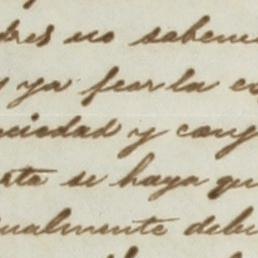 dres no sabem
y ya fear la co
ciedad y cong
rta se haya qu
ualmente debi